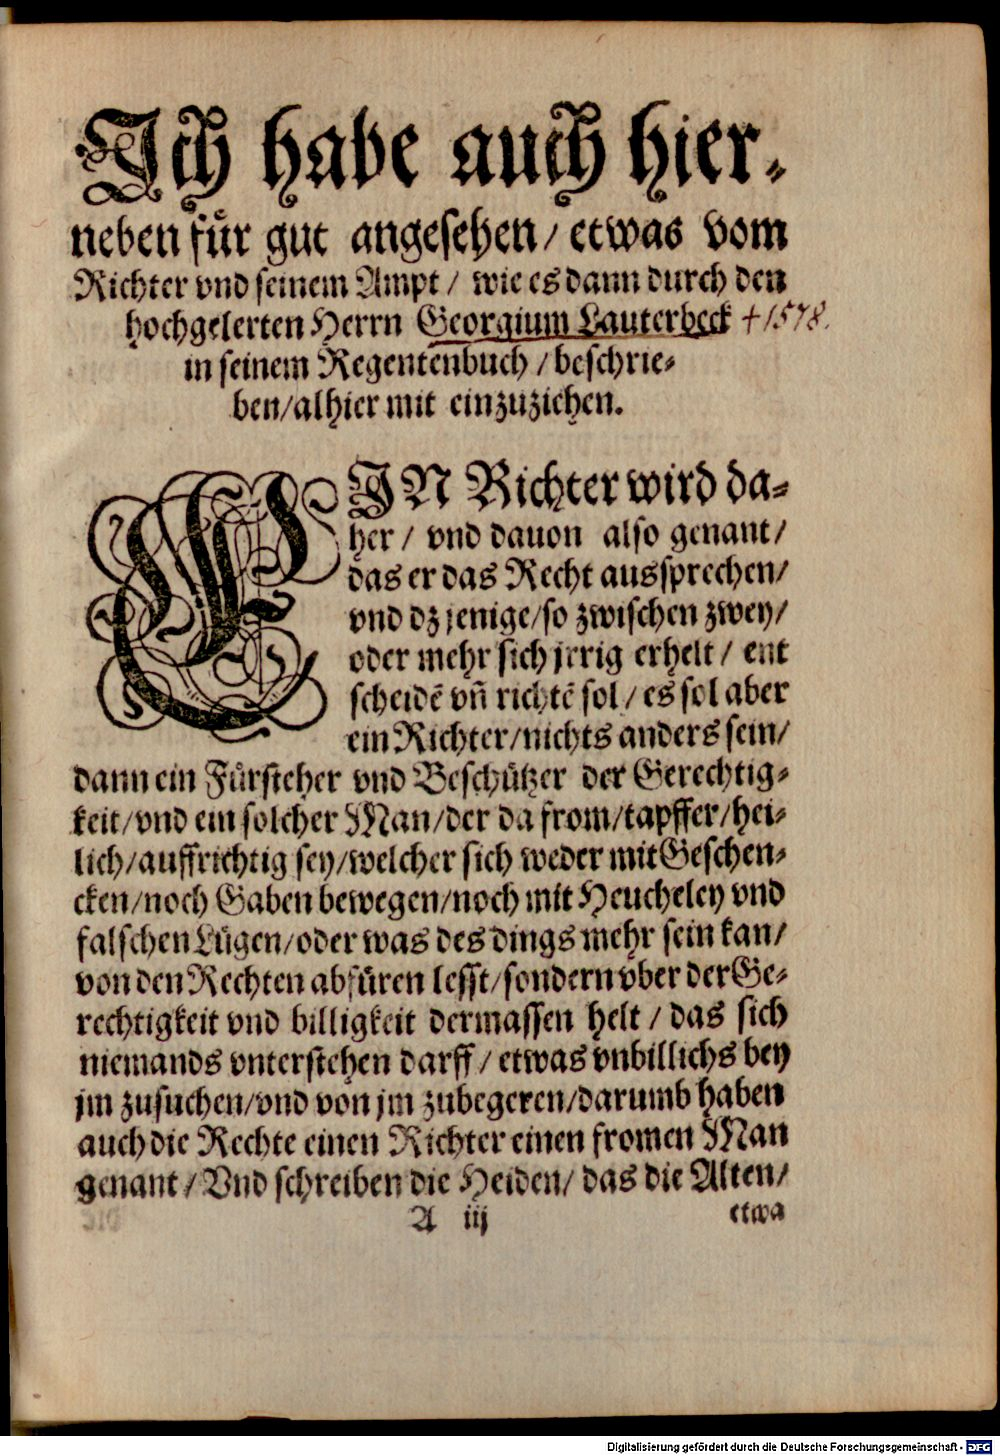 Ich habe auch hier-
neben für gut angesehen / etwas vom
Richter vnd seinem Ampt / wie es dann durch den
hochgelerten Herrn Georgium Lauterbeck †1578.
in seinem Regentenbuch / beschrie-
ben / alhier mit einzuziehen.
EIN Richter wird da-
her / vnd dauon also genant /
das er das Recht aussprechen /
vnd dz jenige / so zwischen zwey /
oder mehr sich jrrig erhelt / ent
scheidē vñ richtē sol / es sol aber
ein Richter / nichts anders sein /
dann ein Fürsteher vnd Beschützer der Gerechtig-
keit / vnd ein solcher Man / der da from / tapffer / hei-
lich / auffrichtig sey / welcher sich weder mit Geschen-
cken / noch Gaben bewegen / noch mit Heucheley vnd
falschen Lügen / oder was des dings mehr sein kan /
von den Rechten abfüren lesst / sondern vber der Ge-
rechtigkeit vnd billigkeit dermassen helt / das sich
niemands vnterstehen darff / etwas vnbillichs bey
jm zusuchen / vnd von jm zubegeren / darumb haben
auch die Rechte einen Richter einen fromen Man
genant / Vnd schreiben die Heiden / das die Alten /
A iij etwa
Digitalisierung gefördert durch die Deutsche Forschungsgemeinschaft - DFG